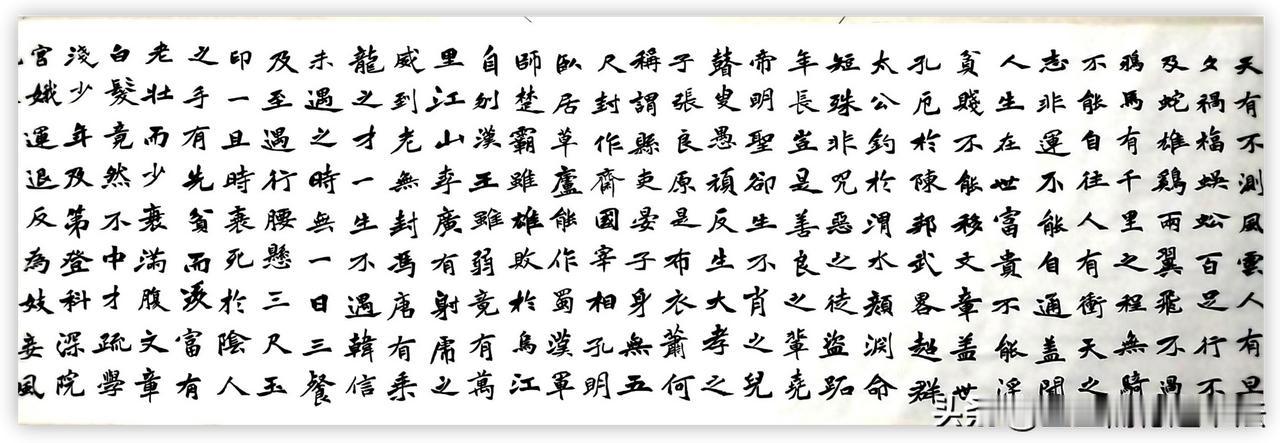 天有不測風雲人有旦
夕禍福蜈蚣百足行不
及蛇雄鷄兩翼飛不過
鴉馬有千里之程無騎
不能自往人有衝天之
志非運不能自通蓋聞
人生在世富貴不能浮
貧賤不能移文章蓋世
孔厄於陳邦武畧超群
太公釣於渭水顏淵命
短殊非咒惡之徒盜跖
年長豈是善良之輩堯
帝明聖卻生不肖之兒
瞽叟愚頑反生大孝之
子張良原是布衣蕭何
稱謂縣吏晏子身無五
尺封作齊國宰相孔明
臥居草廬能作蜀漢軍
師楚霸雖雄敗於烏江
自刎漢王雖弱竟有萬
里江山李廣有射虎之
威到老無封馮唐有乘
龍之才一生不遇韓信
未遇之時無一日三餐
及至遇行腰懸三尺玉
印一旦時衰死於陰人
之手有先貧而後富有
老壯而少衰滿腹文章
白髮竟然不中才疏學
淺少年及第登科深院
宮娥運退反為妓妾風
头条